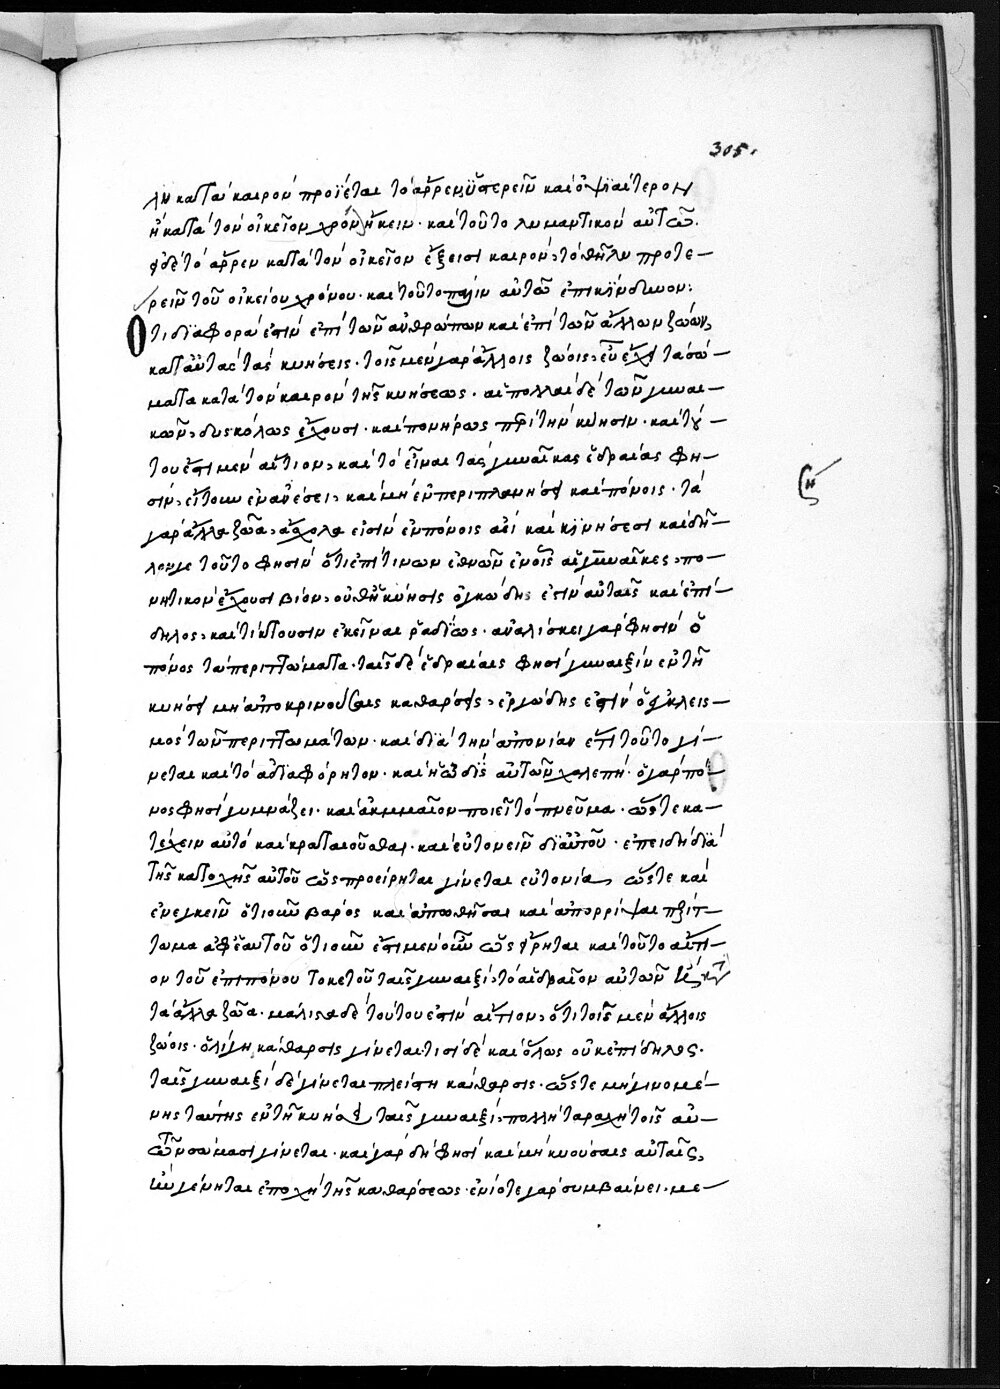 305.
λυ κατὰ καιρὸν προΐεται τὸ ἄρρεν ὑστερεῖν καὶ ὀψιαίτερον
ἢ κατὰ τὸν οἰκεῖον χρόνον ἥκειν· καὶ τοῦτο λυμαντικὸν αὐτῶ.
εἰ δὲ τὸ ἄρρεν κατὰ τὸν οἰκεῖον ἔξεισι καιρόν, τὸ θῆλυ προτε–
ρεῖν τοῦ οἰκείου χρόνου· καὶ τοῦτο πάλιν αὐτῶ ἐπικίνδυνον:
Ὅτι διαφορά ἐστιν ἐπὶ τῶν ἀνθρώπων καὶ ἐπὶ τῶν ἄλλων ζώων,
κατ' αὐτὰς τὰς κυήσεις· τοῖς μὲν γὰρ ἄλλοις ζώοις, εὖ ἔχει τὰ σώ–
ματα κατὰ τὸν καιρὸν τῆς κυήσεως· αἱ πολλαὶ δὲ τῶν γυναι–
κῶν, δυσκόλως ἔχουσι· καὶ πονήρως περὶ τὴν κύησιν· καὶ τού–
του ἐστὶ μὲν αἴτιον, καὶ τὸ εἶναι τὰς γυναῖκας ἑδραίας φη–
σίν, εἴτουν ἐν ἀνέσει, καὶ μὴ ἐν περιπλανήσει καὶ πόνοις· τὰ
γὰρ ἄλλα ζῶα, ἄσχολα εἰσὶν ἐν πόνοις ἀεὶ καὶ κινήσεσι καὶ δῆ–
λον γε τοῦτο φησὶν ὅτι ἐπί τινων ἐθνῶν ἐν οἷς αἱ γυναῖκες, πο–
νητικὸν ἔχουσι βίον, οὔθ' ἡ κύησις ὀγκώδης ἐστὶν αὐταῖς καὶ ἐπί–
δηλος, καὶ τίκτουσιν ἐκεῖναι ῥαδίως· ἀναλίσκει γὰρ φησὶν ὁ
πόνος τὰ περιττώματα· ταῖς δὲ ἑδραίαις φησὶ γυναιξὶν ἐν τῆ
κυήσει μὴ ἀποκρινούσαις καθάρσεις, ἐργώδης ἐστὶν ὁ ἐγκλεισ–
μὸς τῶν περιττωμάτων· καὶ διὰ τὴν ἀπονίαν ἔτι τοῦτο γί–
νεται καὶ τὸ ἀδιαφόρητον· καὶ ἡ ὠδὶς αὐτῶν χαλεπή· ὁ γὰρ πό–
νος φησὶ γυμνάζει· καὶ ἀκμαῖον ποιεῖ τὸ πνεῦμα· ὥστε κα–
τέχειν αὐτὸ καὶ κραταιοῦσθαι· καὶ εὐτονεῖν δι' αὐτοῦ· ἐπειδὴ διὰ
τῆς κατοχῆς αὐτοῦ ὡς προείρηται γίνεται εὐτονία, ὥστε καὶ
ἐνεγκεῖν ὁτιοῦν βάρος καὶ ἀπωθῆσαι καὶ ἀπορρίψαι περίτ–
τωμα ἀφ' ἑαυτοῦ ὁτιοῦν ἔστι μὲν οὖν ὡς εἴρηται καὶ τοῦτο αἴτι–
ον τοῦ ἐπιπόνου τοκετοῦ ταῖς γυναιξί, τὸ αἱδραῖον αὐτῶν
τὰ ἄλλα ζῶα· μάλιστα δὲ τούτου ἐστὶν αἴτιον, ὅτι τοῖς μὲν ἄλλοις
ζώοις· ὀλίγη κάθαρσις γίνεται, τισὶ δὲ καὶ ὅλως οὐκ ἐπίδηλος.
ταῖς γυναιξὶ δὲ γίνεται πλείστη κάθαρσις· ὥστε μὴ γινομέ–
νης ταύτης ἐν τῆ κυήσει ταῖς γυναιξί, πολλὴ ταραχὴ τοῖς αὐ–
τῶν σώμασι γίνεται· καὶ γὰρ δή φησι καὶ μὴ κυούσαις αὐταῖς,
ἂν γένηται ἐποχὴ τῆς καθάρσεως· ἐνίοτε γὰρ συμβαίνει· με–